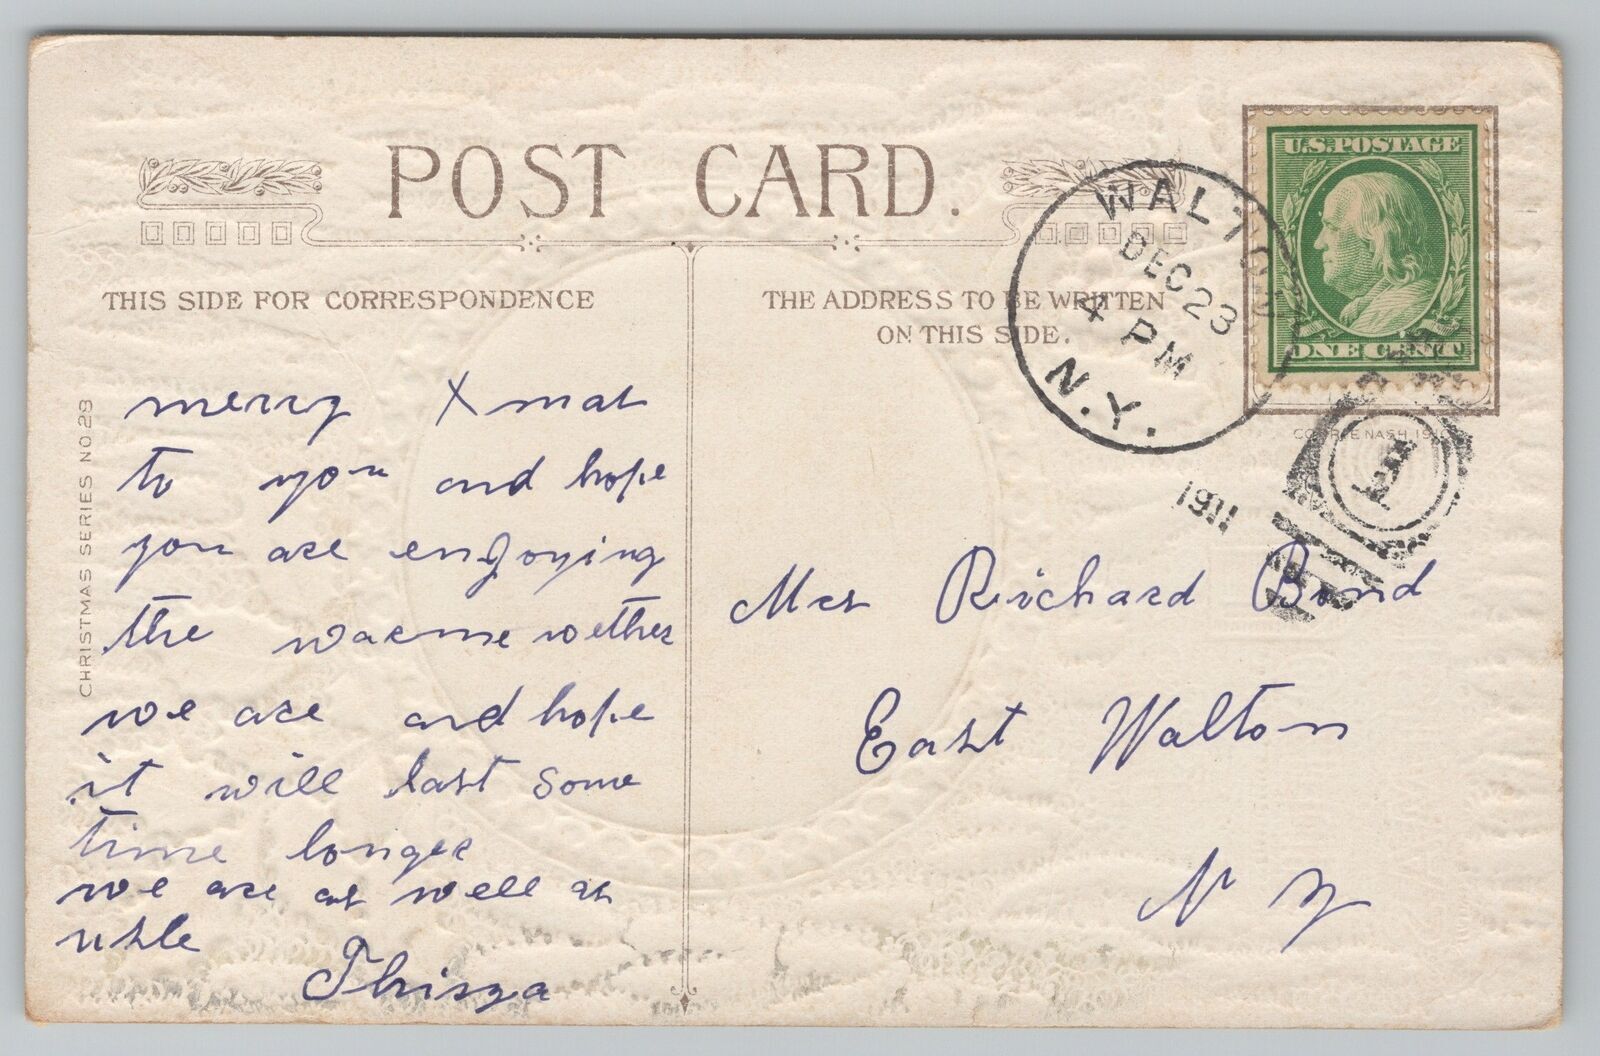 POST CARD.
THIS SIDE FOR CORRESPONDENCE
THE ADDRESS TO BE WRITTEN
ON THIS SIDE.
CHRISTMAS SERIES NO 28
U.S. POSTAGE
ONE CENT
WALTON
DEC 23
4 PM
N.Y.
1911
1
merry Xmas
to you and hope
you are enjoying
the warme wether
we are and hope
it will last some
time longer
we are as well as
usle
Mrs Richard Bond
East Walton
N Y